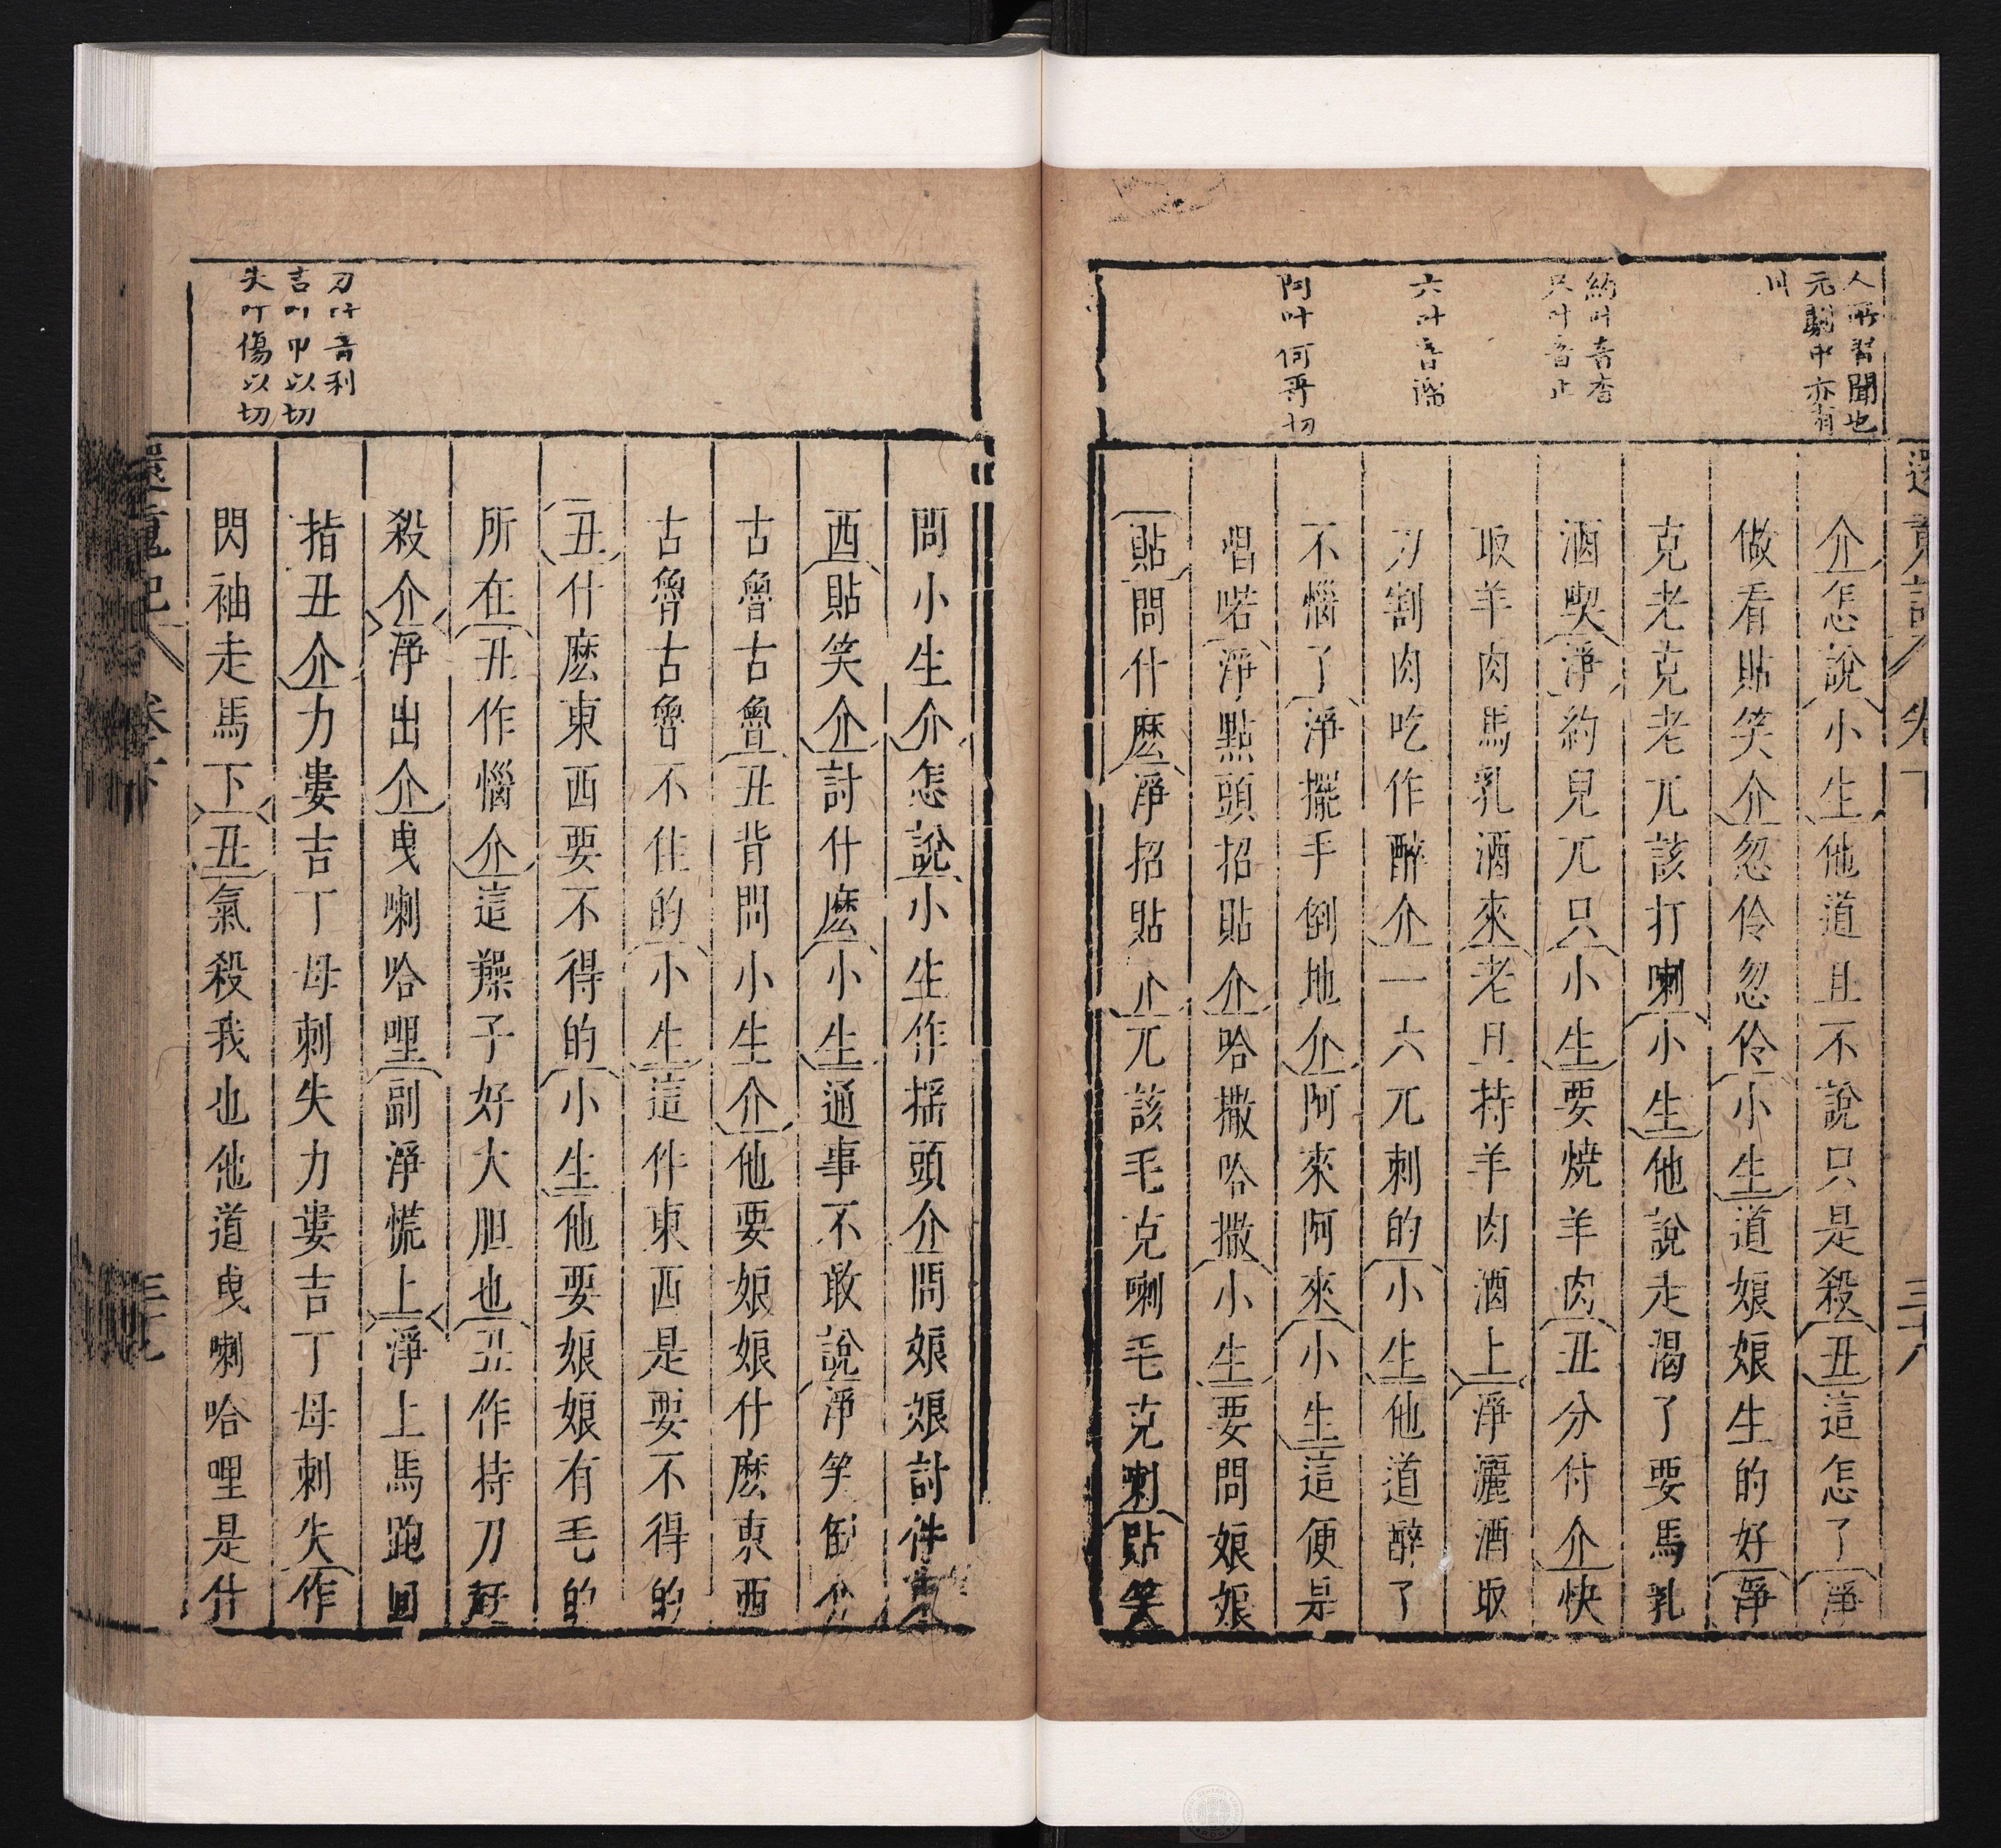 人所習聞也
元劇中亦有
川
約叶音杳
只叶音止
六叶音溜
阿叶何哥切
還魂記
卷下
三十八
介怎說小生他道且不說只是殺丑這怎了淨
做看貼笑介忽伶忽伶小生道娘娘生的好淨
克老克老兀該打喇小生他說走渴了要馬乳
酒喫淨約兒兀只小生要燒羊肉丑分付介快
取羊肉馬乳酒來老旦持羊肉酒上淨灑酒取
刀割肉吃作醉介一六兀刺的小生他道醉了
不惱了淨擺手倒地介阿來阿來小生這便是
唱喏淨點頭招貼介哈撒哈撒小生要問娘娘
貼問什麽淨招貼介兀該毛克喇毛克喇貼笑
力叶音利
吉叶巾以切
失叶傷以切
問小生介怎說小生作搖頭介問娘娘討件東
西貼笑介討什麽小生通事不敢說淨笑倒介
古魯古魯丑背問小生介他要娘娘什麽東西
古魯古魯不住的小生這件東西是要不得的
丑什麽東西要不得的小生他要娘娘有毛的
所在丑作惱介這臊子好大胆也丑作持刀趕
殺介淨出介曳喇哈哩副淨慌上淨上馬跑回
指丑介力婁吉丁母刺失力婁吉丁母刺失作
閃袖走馬下丑氣殺我也他道曳喇哈哩是什
還魂記
卷下